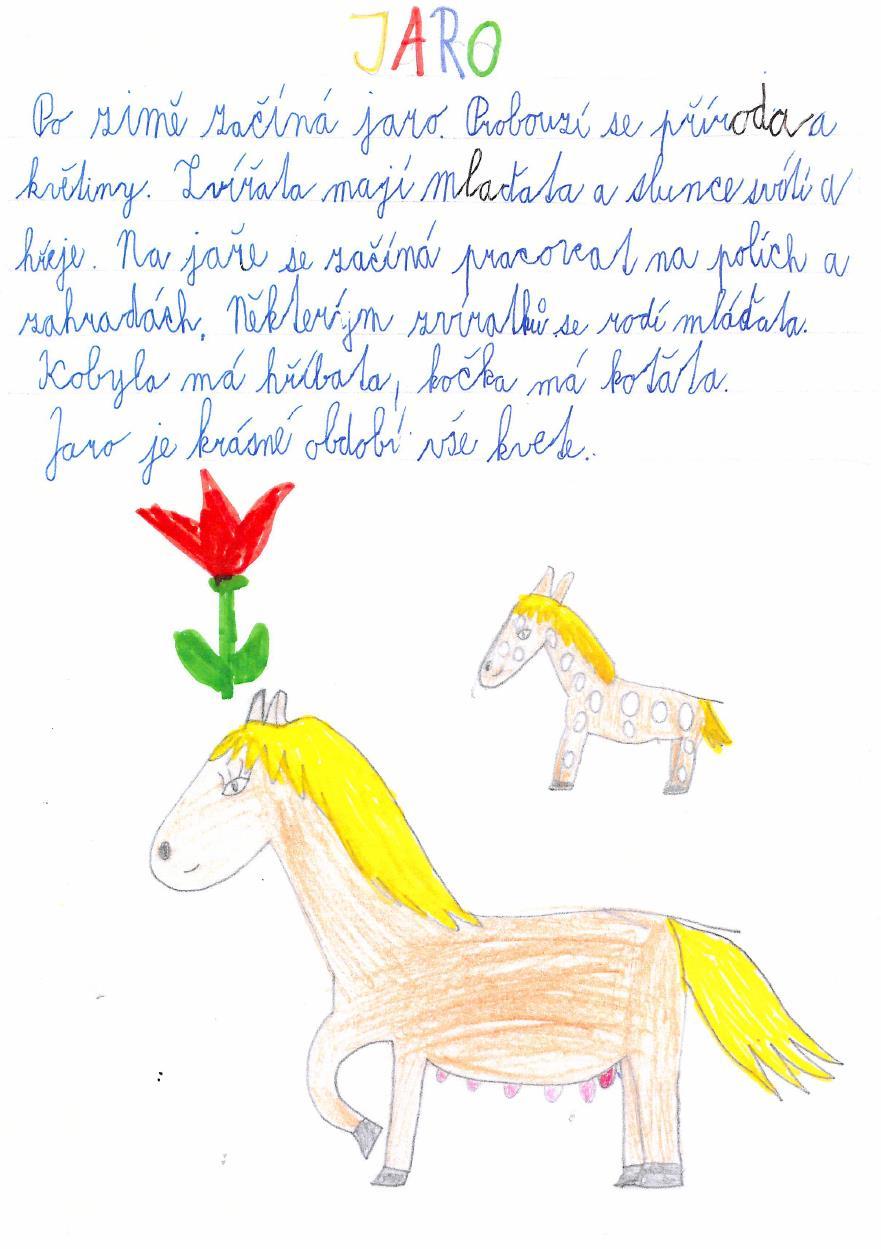 JARO
Po zimě začíná jaro. Probouzí se příroda a
květiny. Zvířata mají mlaďata a slunce svítí a
hřeje. Na jaře se začíná pracovat na polích a
zahradách. Některým zvířatků se rodí mláďata.
Kobyla má hříbata, kočka má koťata.
Jaro je krásné období vše kvete.